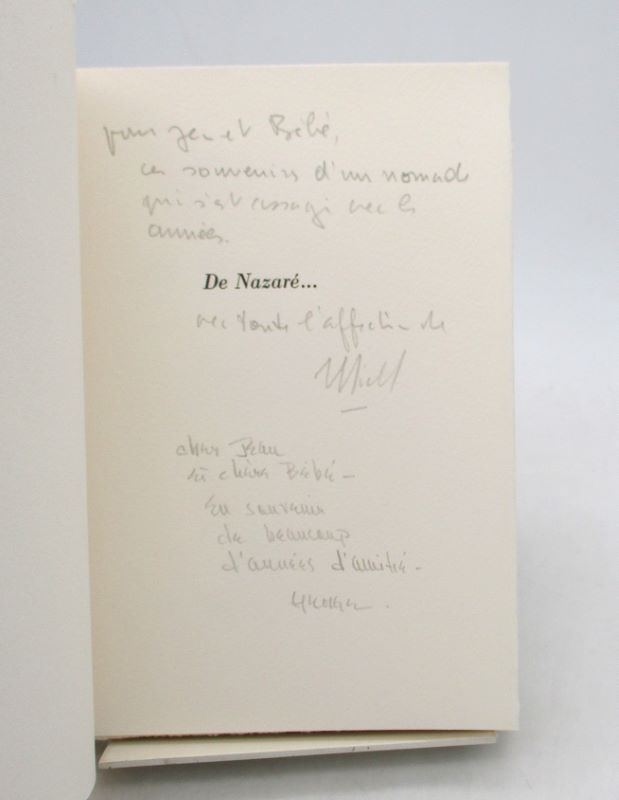 pour Jean et Bébé,
ces souvenirs d'un nomade
qui s'est assagi avec les
années.
De Nazaré...
avec toute l'affection de
cher Jean
et chère Bébé –
En souvenir
de beaucoup
d'années d'amitié –